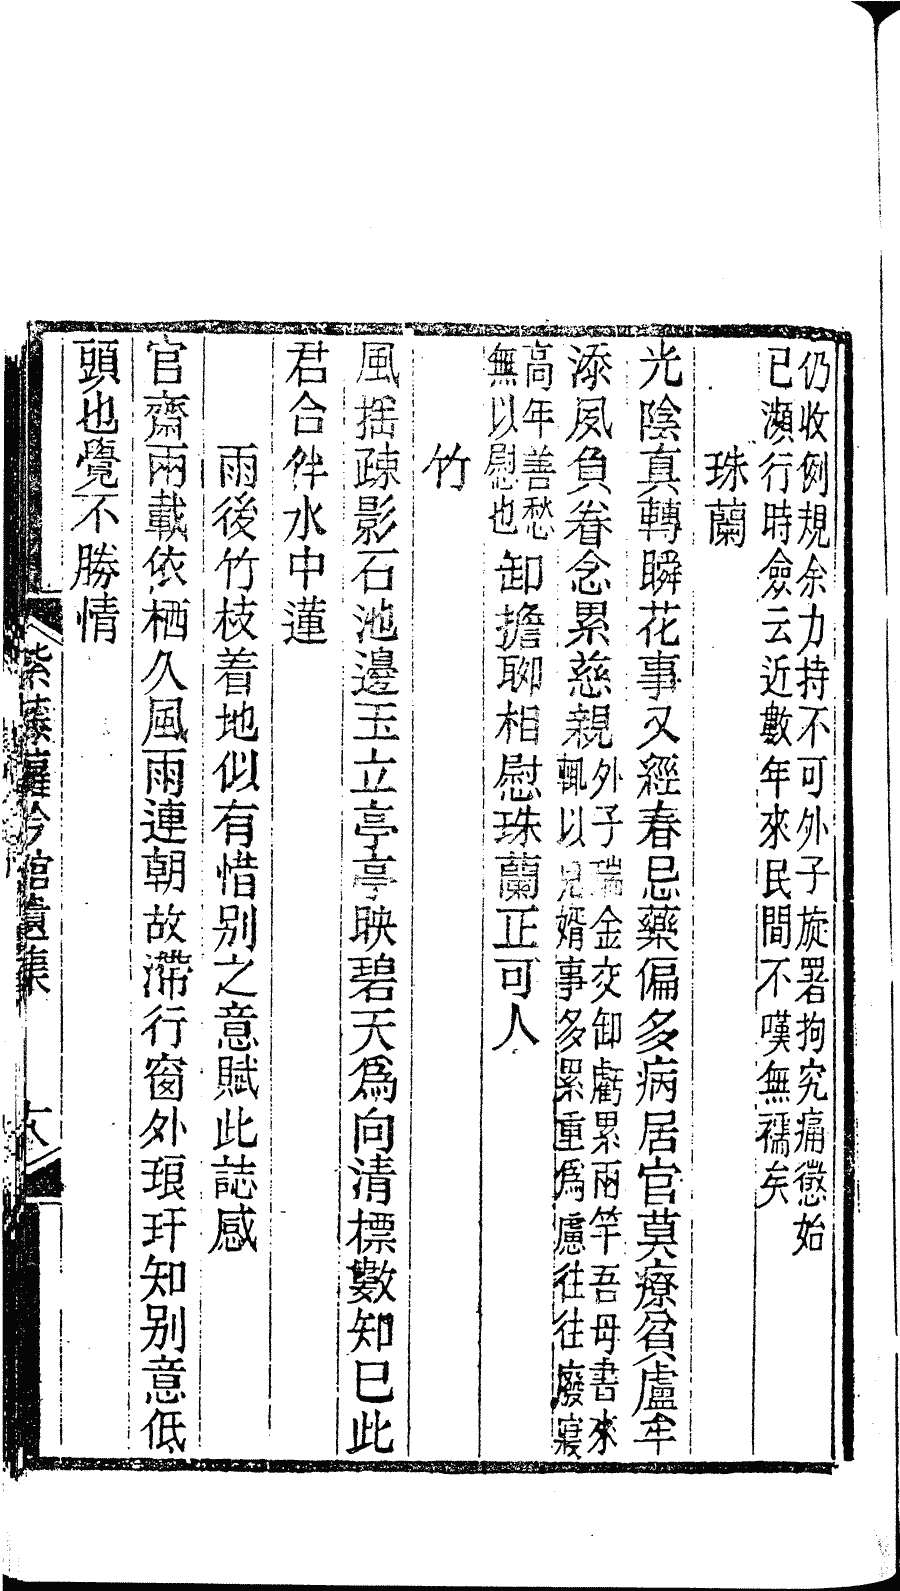 仍收例規余力持不可外子旋署拘究痛懲始
已瀕行時僉云近數年來民間不嘆無襦矣
珠蘭
光陰真轉瞬花事又經春忌藥偏多病居官莫療貧盧牟
添夙負眷念累慈親外子瑞金交卸虧累兩竿吾母書來
輒以兒婿事多累重爲慮往往廢寢
高年善愁
無以慰也卸擔聊相慰珠蘭正可人
竹
風摇疎影石池邊玉立亭亭映碧天爲向清標數知己此
君合伴水中蓮
雨後竹枝着地似有惜别之意賦此誌感
官齋兩載依栖久風雨連朝故滯行窗外琅玕知别意低
頭也覺不勝情
紫藤蘿吟館遺集